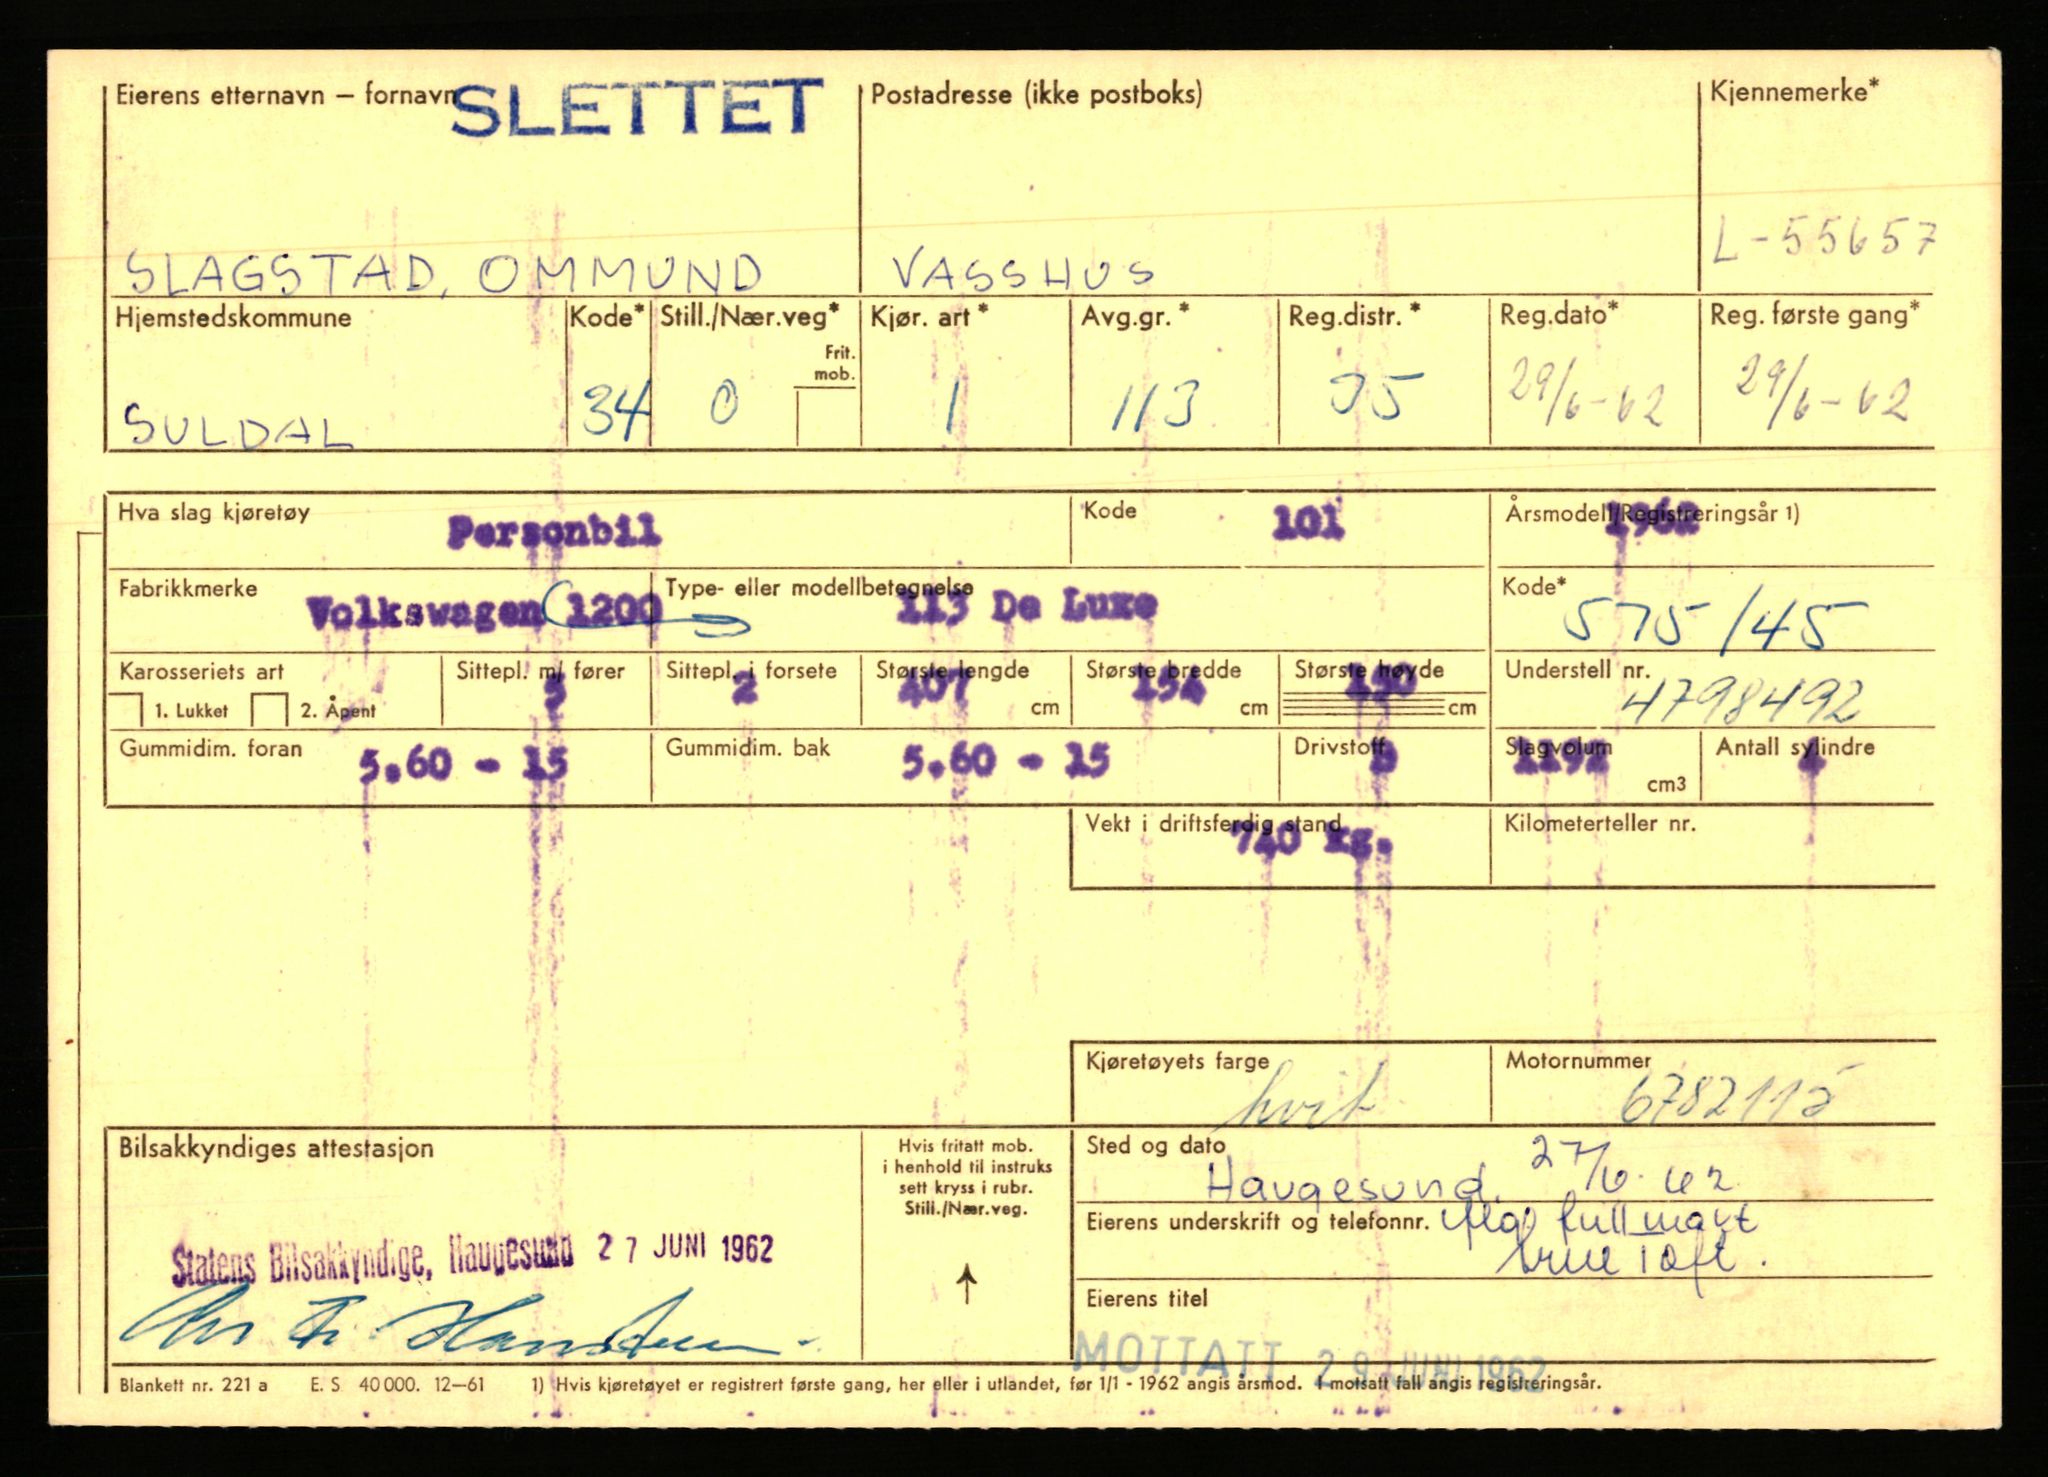 Eierens etternavn – fornavn SLETTET Postadresse (ikke postboks) Kjennemerke*
SLAGSTAD, OMMUND VASSHUS L-55657
Hjemstedskommune Kode* Still./Nær.veg* Kjør. art* Avg.gr.* Reg.distr.* Reg.dato* Reg. første gang*
Frit. mob.
SULDAL 34 0 1 113 35 29/6-62 29/6-62
Hva slag kjøretøy Kode Årsmodell/Registreringsår 1)
Personbil 101 1962
Fabrikkmerke Type- eller modellbetegnelse Kode*
Volkswagen (1200 113 De Luxe 575/45
Karosseriets art Sittepl. m/ fører Sittepl. i forsete Største lengde Største bredde Største høyde Understell nr.
1. Lukket 2. Åpent 5 2 407 cm 154 cm 150 cm 4798492
Gummidim. foran Gummidim. bak Drivstoff Slagvolum Antall sylindre
5.60 - 15 5.60 - 15 B 1192 cm3 4
Vekt i driftsferdig stand Kilometerteller nr.
740 kg.
Kjøretøyets farge Motornummer
hvit 6782115
Bilsakkyndiges attestasjon Hvis fritatt mob. i henhold til instruks sett kryss i rubr. Still./Nær.veg. Sted og dato
Haugesund. 27/6-62
Eierens underskrift og telefonnr. iflg fullmakt
Statens Bilsakkyndige, Haugesund 27 JUNI 1962
Eierens titel
MOTTATT 29 JUNI 1962
Blankett nr. 221 a E. S 40 000. 12–61 1) Hvis kjøretøyet er registrert første gang, her eller i utlandet, før 1/1 - 1962 angis årsmod. I motsatt fall angis registreringsår.